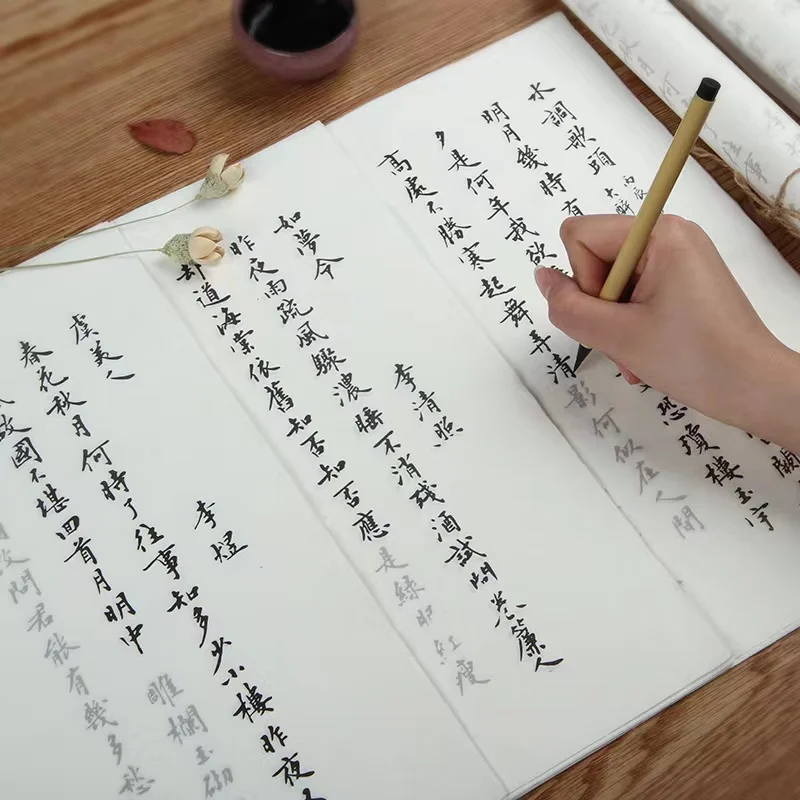 水調歌頭 丙辰
大醉
明月幾時有 闕
夕是何年我欲 恐瓊樓玉宇
高處不勝寒起舞弄清影何似在人間
如夢令 李清照
昨夜雨疏風驟濃睡不消残酒試問卷簾人
却道海棠依舊知否知否應是綠肥紅瘦
虞美人 李煜
春花秋月何時了往事知多少小樓昨夜
故國不堪回首月明中雕欄玉砌
問君能有幾多愁